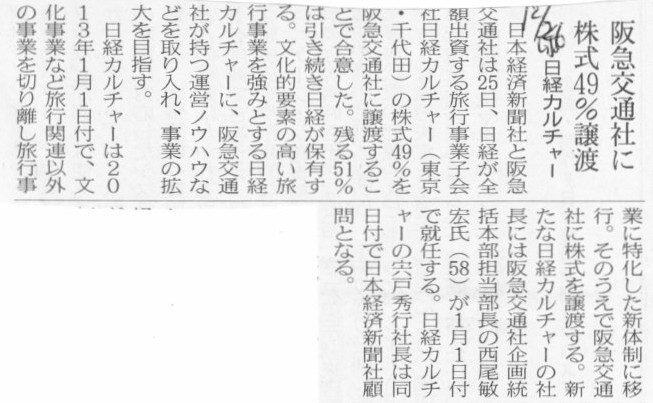 阪急交通社に
株式49％譲渡
日経カルチャー
12/26
日本経済新聞社と阪急
交通社は25日、日経が全
額出資する旅行事業子会
社日経カルチャー（東京
・千代田）の株式49％を
阪急交通社に譲渡するこ
とで合意した。残る51％
は引き続き日経が保有す
る。文化的要素の高い旅
行事業を強みとする日経
カルチャーに、阪急交通
社が持つ運営ノウハウな
どを取り入れ、事業の拡
大を目指す。
日経カルチャーは２０
１３年１月１日付で、文
化事業など旅行関連以外
の事業を切り離し旅行事
業に特化した新体制に移
行。そのうえで阪急交通
社に株式を譲渡する。新
たな日経カルチャーの社
長には阪急交通社企画統
括本部担当部長の西尾敏
宏氏（58）が１月１日付
で就任する。日経カルチ
ャーの宍戸秀行社長は同
日付で日本経済新聞社顧
問となる。